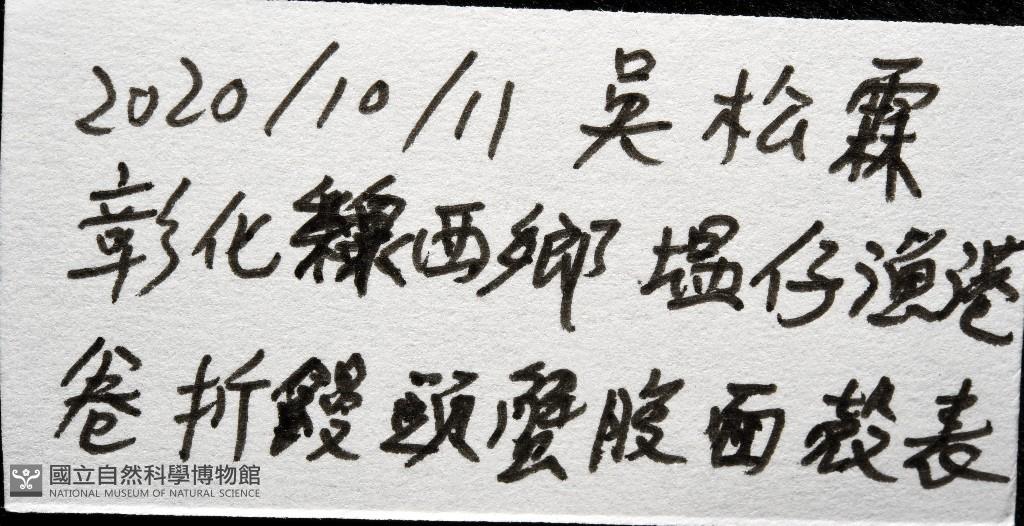 2020/10/11 吳松霖
彰化線西鄉 塭仔漁港
卷折饅頭蟹腹面殼表
國立自然科學博物館
NATIONAL MUSEUM OF NATURAL SCIENCE